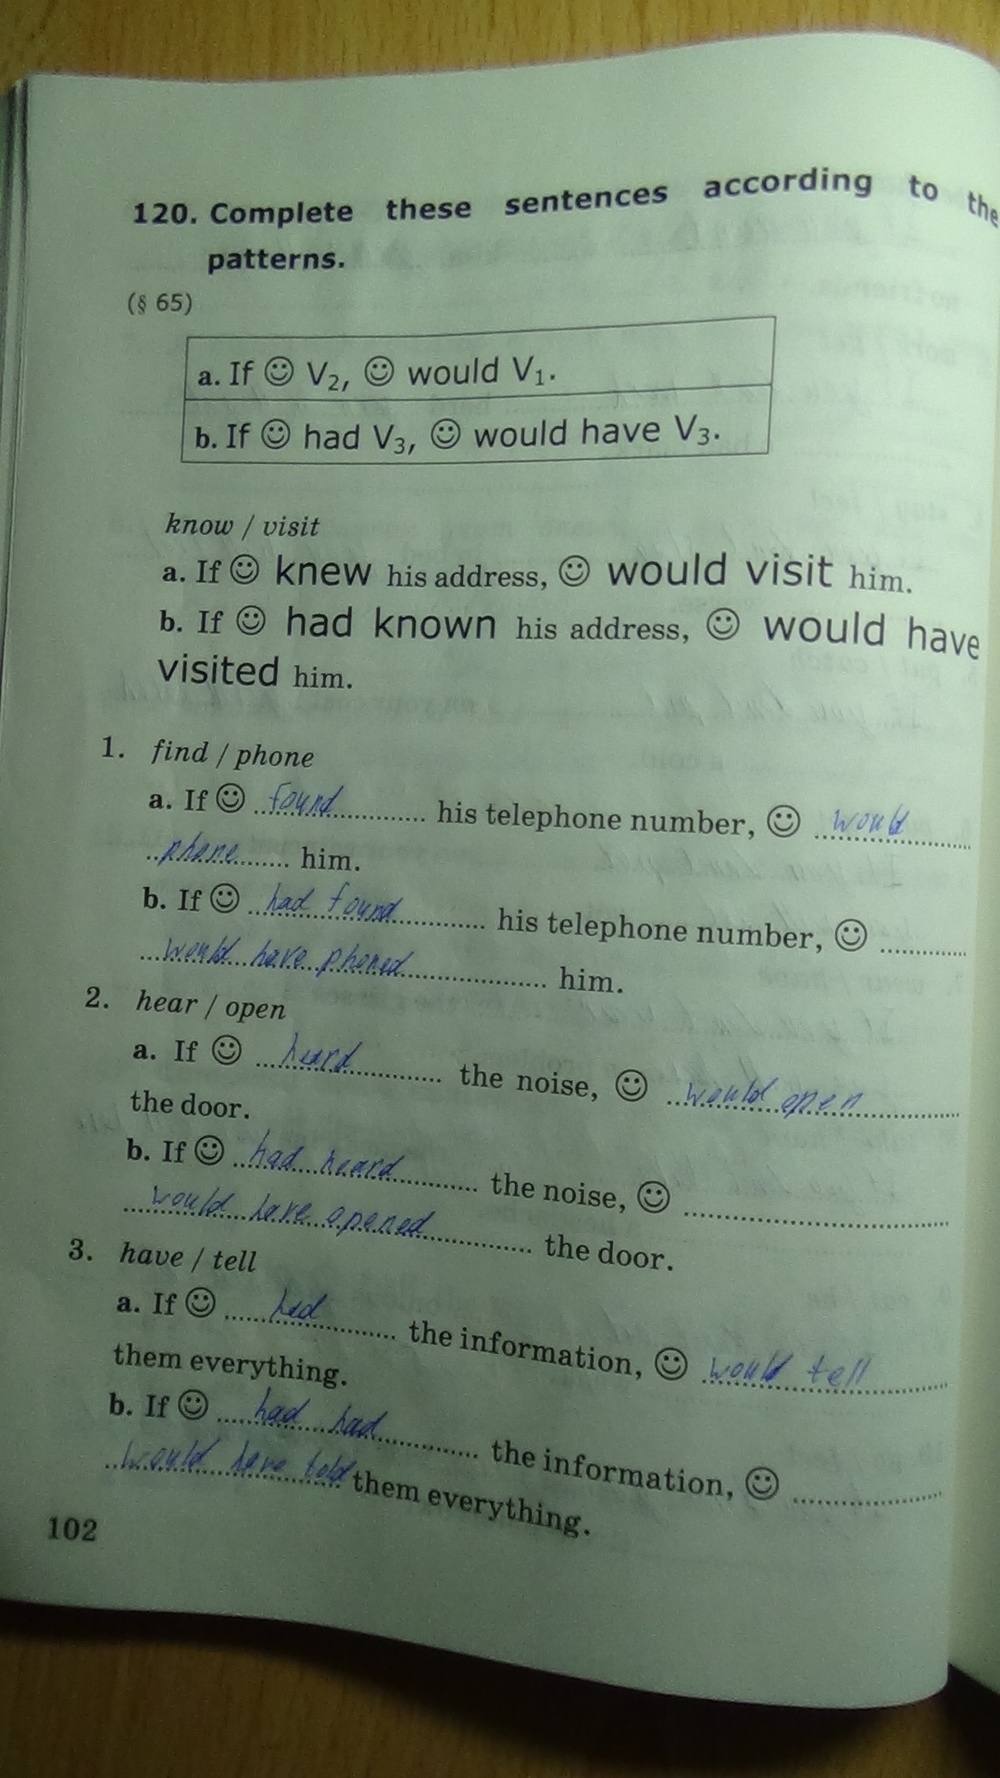 120. Complete these sentences according to the
patterns.
(§ 65)
a. If ☺ V₂, ☺ would V₁.
b. If ☺ had V₃, ☺ would have V₃.
know / visit
a. If ☺ knew his address, ☺ would visit him.
b. If ☺ had known his address, ☺ would have
visited him.
1. find / phone
a. If ☺ found his telephone number, ☺ would
phone him.
b. If ☺ had found his telephone number, ☺
would have phoned him.
2. hear / open
a. If ☺ heard the noise, ☺ would open
the door.
b. If ☺ had heard the noise, ☺
would have opened the door.
3. have / tell
a. If ☺ had the information, ☺ would tell
them everything.
b. If ☺ had had the information, ☺
would have told them everything.
102